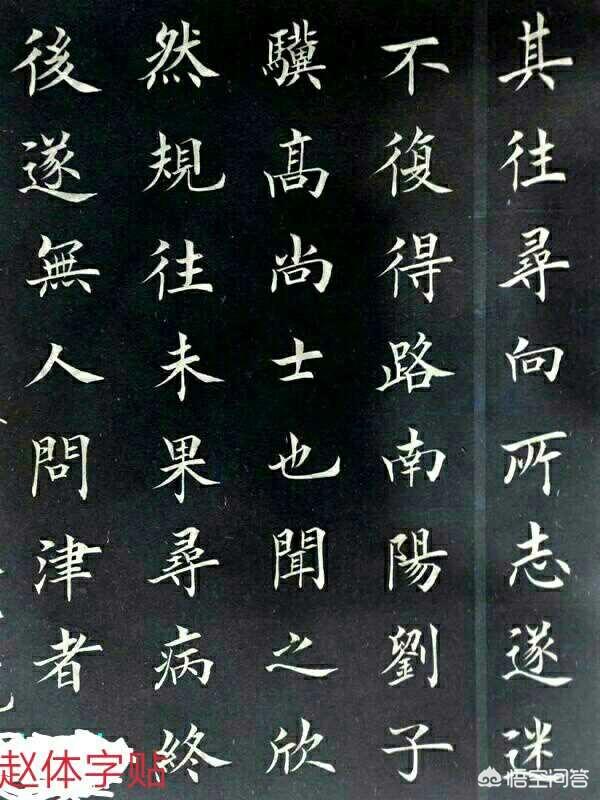 其往尋向所志遂迷
不復得路南陽劉子
驥高尚士也聞之欣
然規往未果尋病終
後遂無人問津者
赵体字贴
悟空问答